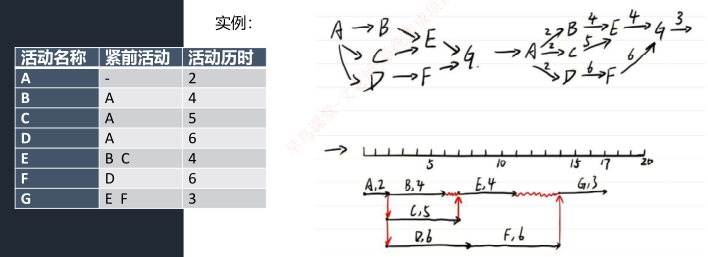 实例：
活动名称 紧前活动 活动历时
A - 2
B A 4
C A 5
D A 6
E B C 4
F D 6
G E F 3
A → B → E → G
C
D → F
→ A 2 B 4 E 4 G 3 →
2 C 5
2 D 6 F 6
→
5 10 15 17 20
A,2 B,4 E,4 G,3
C,5
D,6 F,6